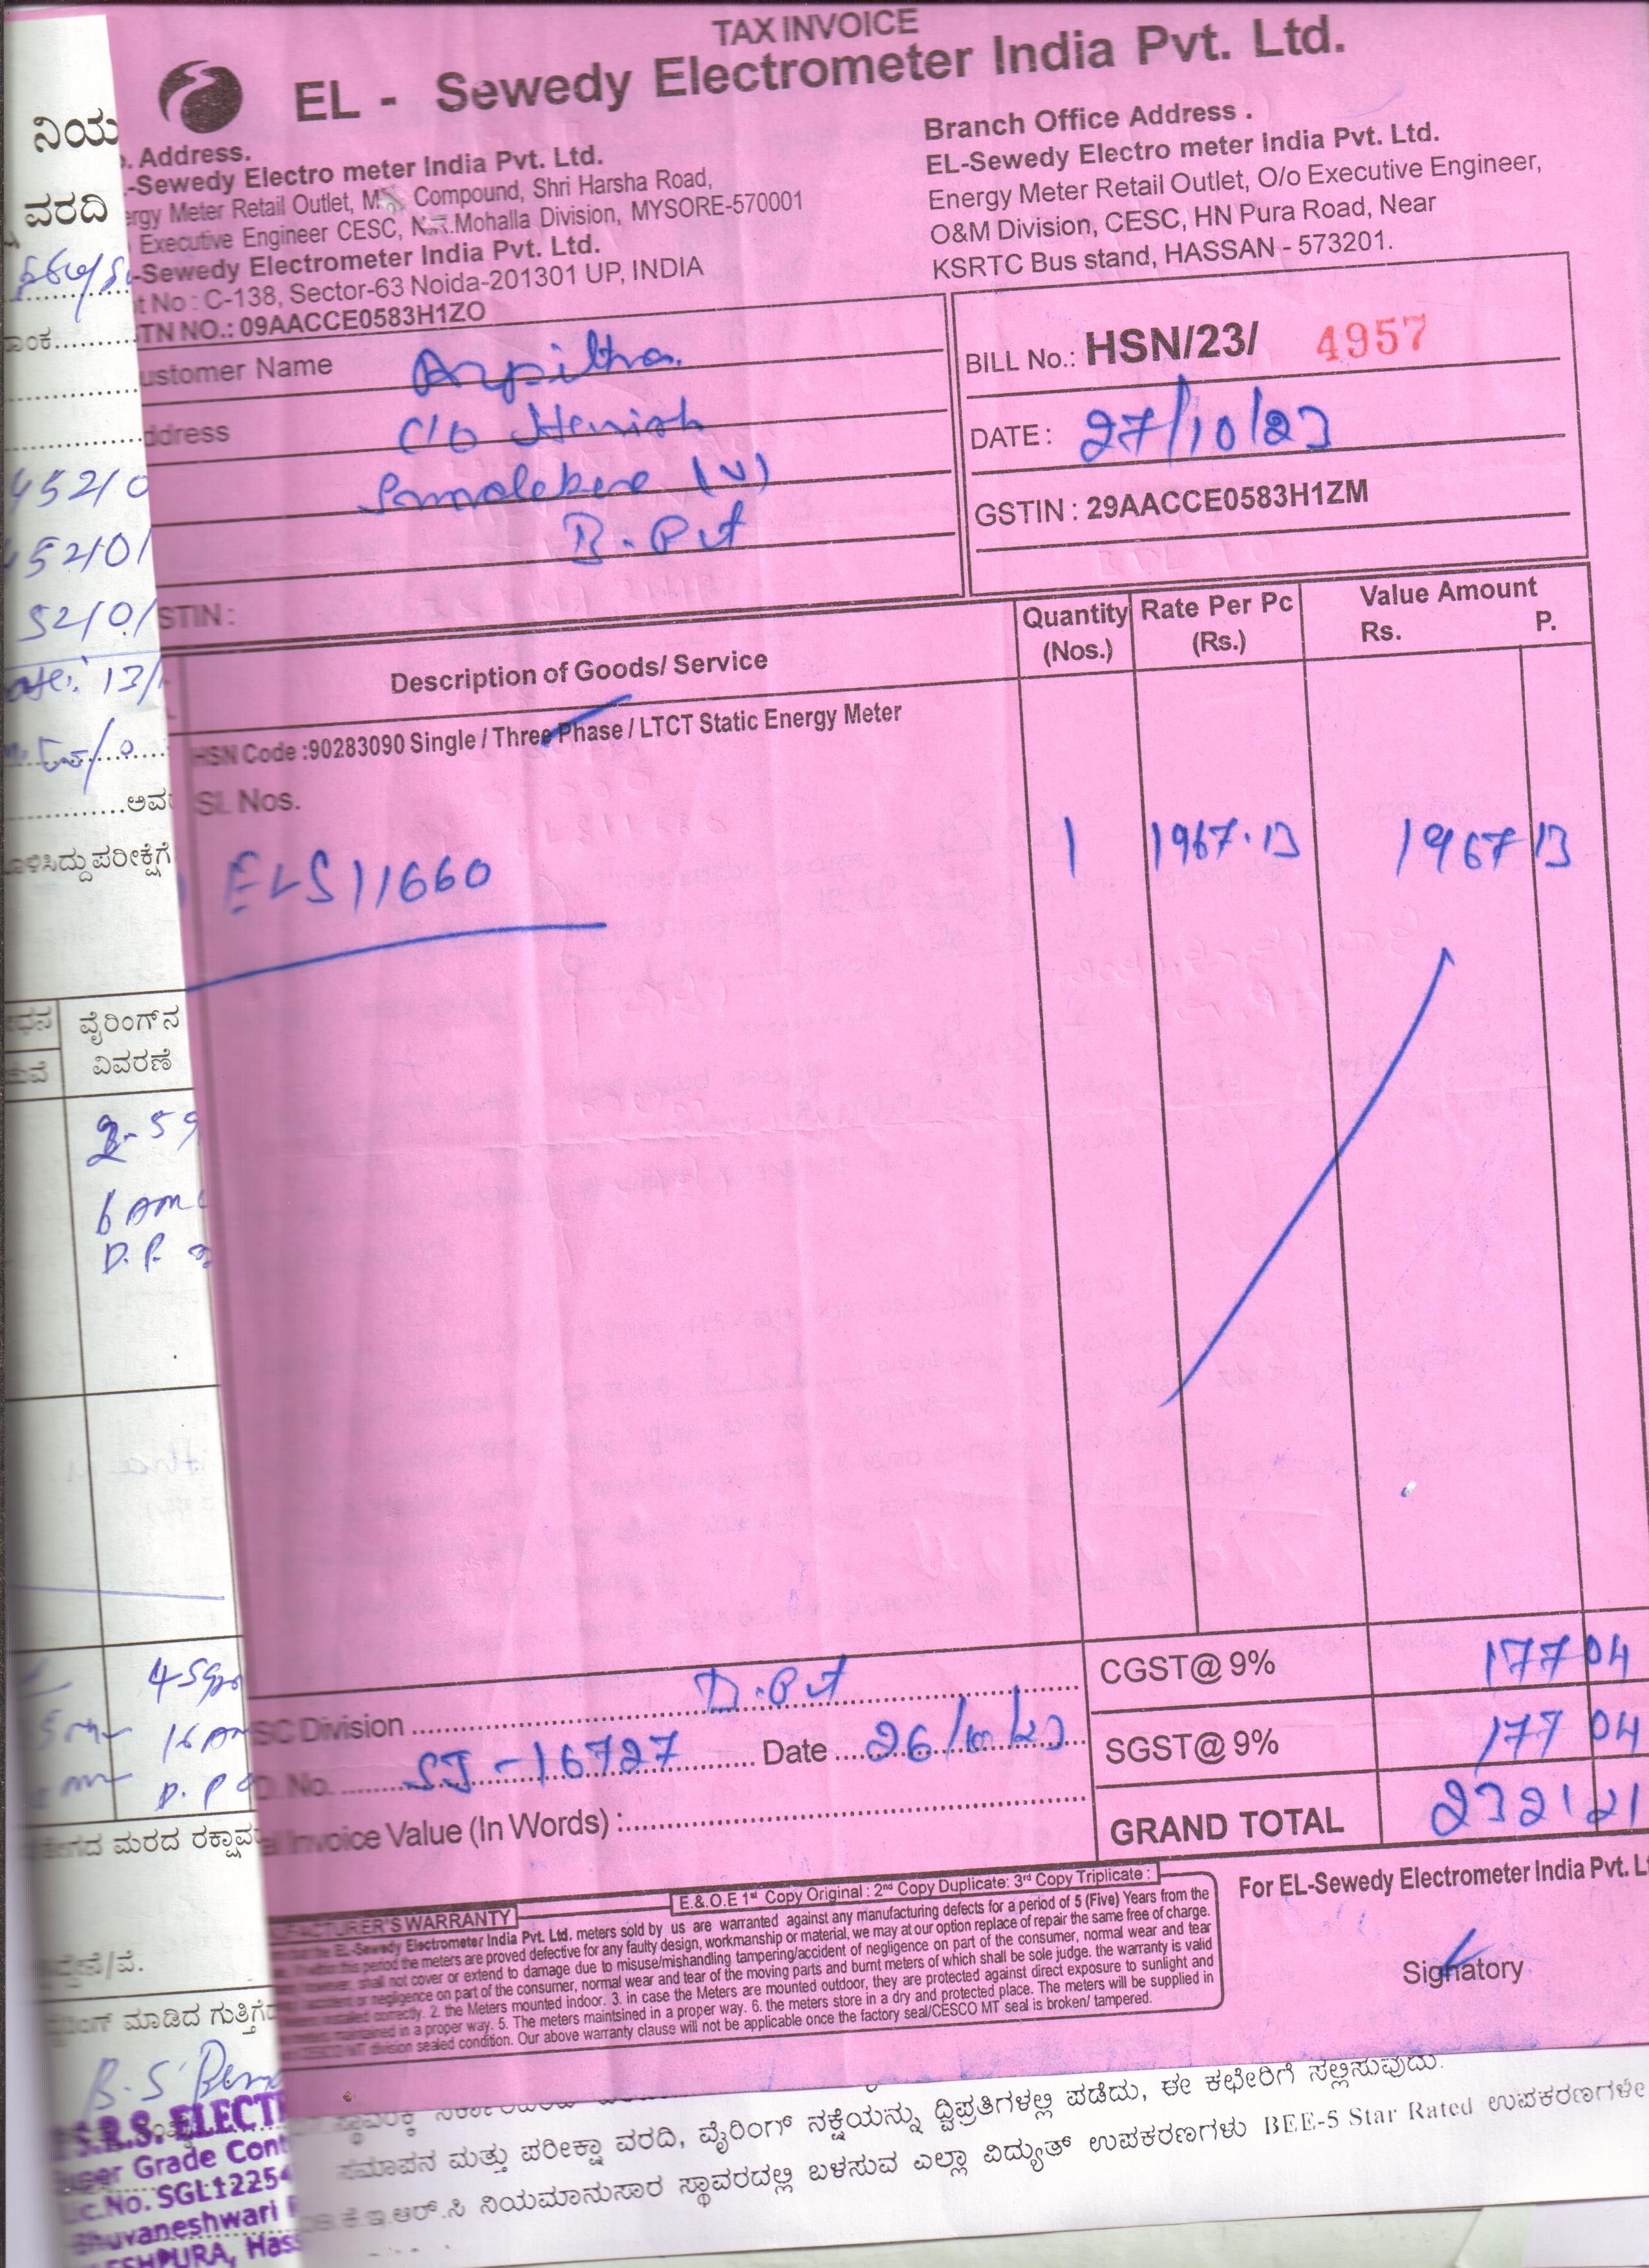 TAX INVOICE
EL - Sewedy Electrometer India Pvt. Ltd.
. Address.
-Sewedy Electro meter India Pvt. Ltd.
rgy Meter Retail Outlet, M Compound, Shri Harsha Road,
Executive Engineer CESC, N.R.Mohalla Division, MYSORE-570001
-Sewedy Electrometer India Pvt. Ltd.
t No : C-138, Sector-63 Noida-201301 UP, INDIA
TN NO.: 09AACCE0583H1ZO
Branch Office Address .
EL-Sewedy Electro meter India Pvt. Ltd.
Energy Meter Retail Outlet, O/o Executive Engineer,
O&M Division, CESC, HN Pura Road, Near
KSRTC Bus stand, HASSAN - 573201.
ustomer Name Arpitha.
ddress C/o Harish
(V)
B. Put
STIN :
BILL No.: HSN/23/ 4957
DATE : 27/10/23
GSTIN : 29AACCE0583H1ZM
Description of Goods/ Service Quantity (Nos.) Rate Per Pc (Rs.) Value Amount Rs. P.
HSN Code :90283090 Single / Three Phase / LTCT Static Energy Meter
Sl. Nos.
ELS11660 1 1967.13 1967 13
CGST@ 9% 177 04
SC Division
SGST@ 9% 177 04
No. SJ-16727 Date 26/10/23
GRAND TOTAL 2321 21
l Invoice Value (In Words) :
E.&.O.E 1st Copy Original : 2nd Copy Duplicate: 3rd Copy Triplicate :
FACTURER'S WARRANTY
EL-Sewedy Electrometer India Pvt. Ltd. meters sold by us are warranted against any manufacturing defects for a period of 5 (Five) Years from the
this period the meters are proved defective for any faulty design, workmanship or material, we may at our option replace of repair the same free of charge.
however, shall not cover or extend to damage due to misuse/mishandling tampering/accident of negligence on part of the consumer, normal wear and tear
or negligence on part of the consumer, normal wear and tear of the moving parts and burnt meters of which shall be sole judge. the warranty is valid
installed correctly. 2. the Meters mounted indoor. 3. in case the Meters are mounted outdoor, they are protected against direct exposure to sunlight and
maintained in a proper way. 5. The meters maintsined in a proper way. 6. the meters store in a dry and protected place. The meters will be supplied in
MT division sealed condition. Our above warranty clause will not be applicable once the factory seal/CESCO MT seal is broken/ tampered.
For EL-Sewedy Electrometer India Pvt. L
Signatory
ನಿಯ
ವರದಿ
4521 0
5210/
5210/
13/
ಅವ
ಪರೀಕ್ಷೆಗೆ
ವೈರಿಂಗ್‌ನ
ವಿವರಣೆ
2-59
6 Am
D.P.
ಮರದ ರಕ್ಷಾವ
ಮಾಡಿದ ಗುತ್ತಿಗೆ
B.S
S.R.S. ELECT
er Grade Cont
c.No. SGL1225
huvaneshwari
ESHPURA, Hass
ಸಮಾಪನ ಮತ್ತು ಪರೀಕ್ಷಾ ವರದಿ, ವೈರಿಂಗ್ ನಕ್ಷೆಯನ್ನು ದ್ವಿಪ್ರತಿಗಳಲ್ಲಿ ಪಡೆದು, ಈ ಕಛೇರಿಗೆ ಸಲ್ಲಿಸುವುದು.
ಕೆ.ಇ.ಆರ್.ಸಿ ನಿಯಮಾನುಸಾರ ಸ್ಥಾವರದಲ್ಲಿ ಬಳಸುವ ಎಲ್ಲಾ ವಿದ್ಯುತ್ ಉಪಕರಣಗಳು BEE-5 Star Rated ಉಪಕರಣಗಳೇ